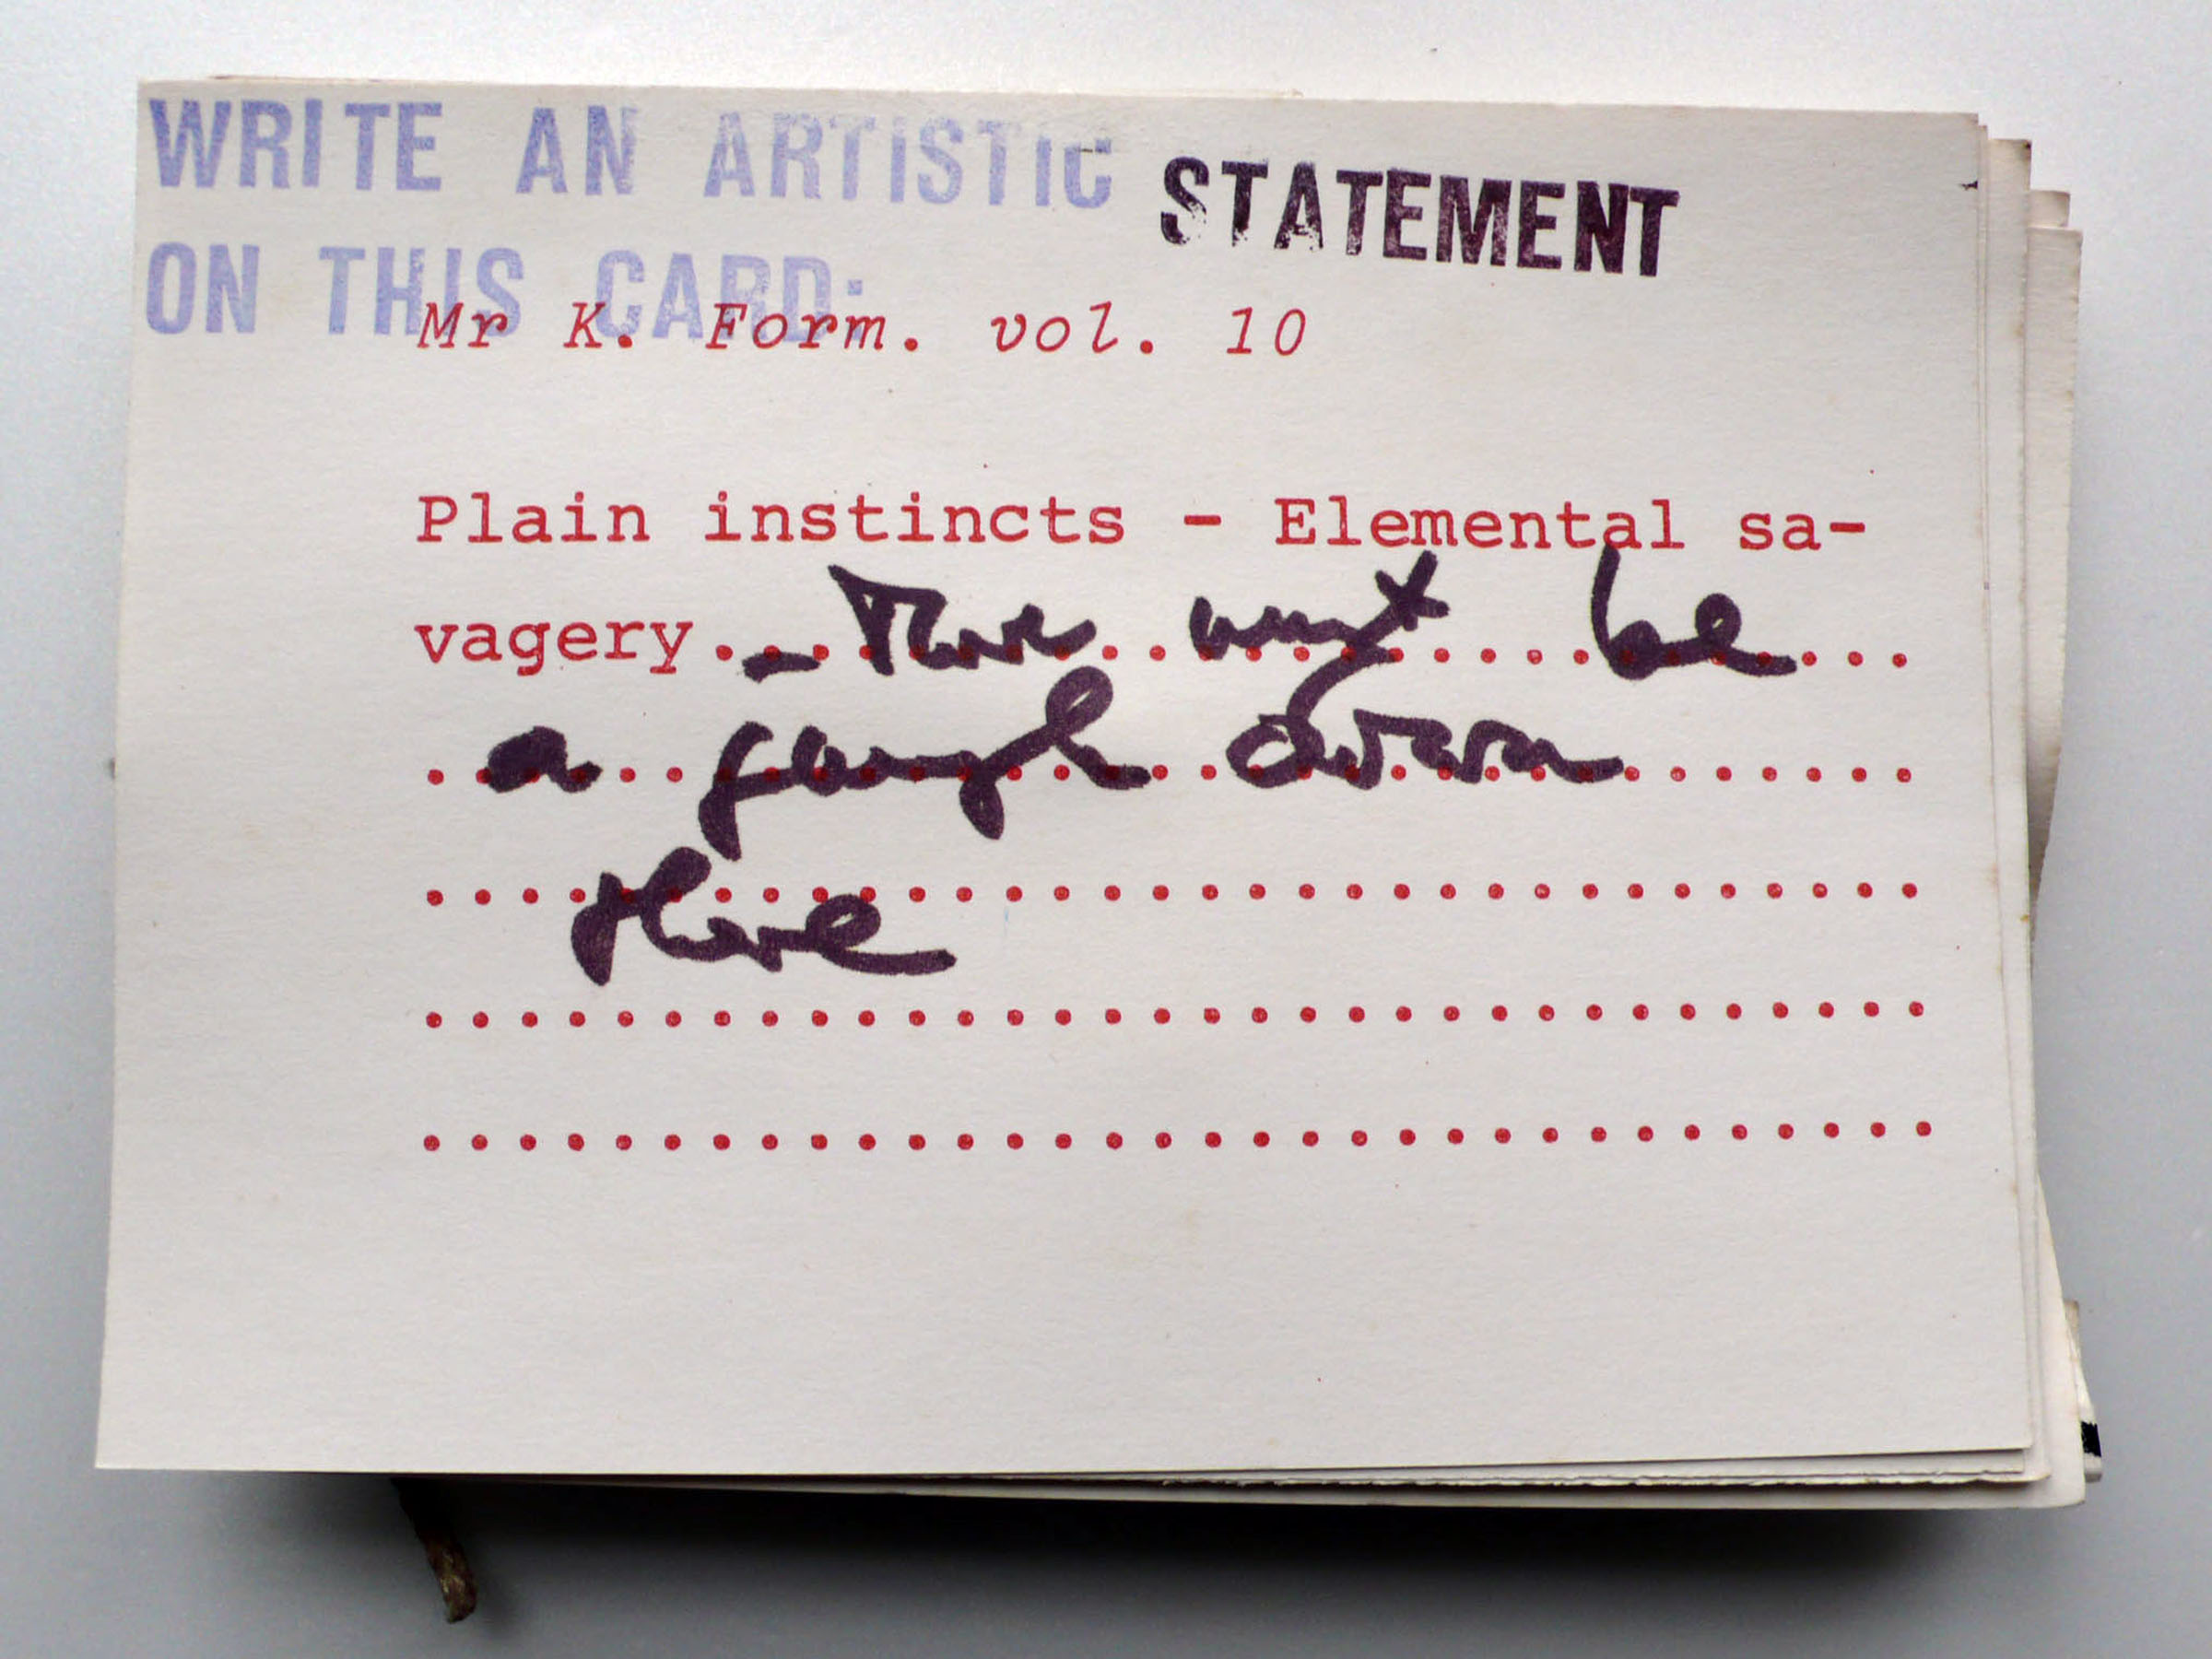 WRITE AN ARTISTIC STATEMENT
ON THIS CARD:
Mr K. Form. vol. 10
Plain instincts - Elemental sa-
vagery..................................
- There must be
a down
there